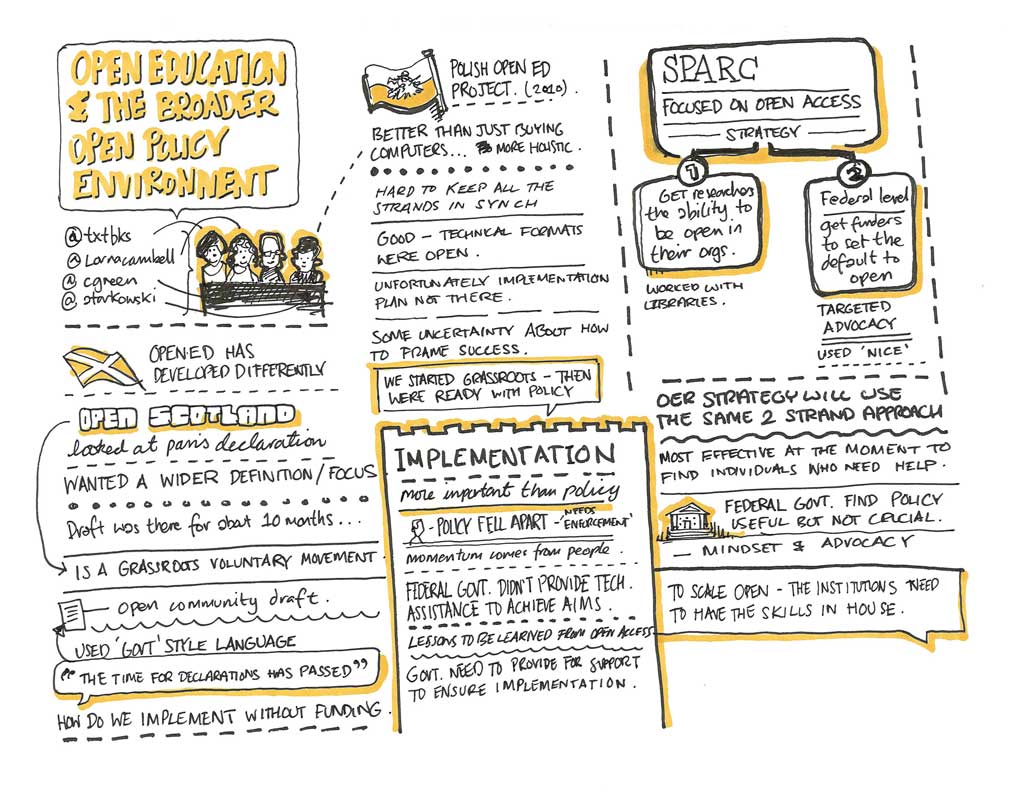 OPEN EDUCATION
& THE BROADER
OPEN POLICY
ENVIRONMENT
@txtbks
@Lornacambell
@ cgreen
@ starkowski
OPEN·ED HAS
DEVELOPED DIFFERENTLY
OPEN SCOTLAND
looked at paris declaration
WANTED A WIDER DEFINITION/FOCUS
Draft was there for obat 10 months...
IS A GRASSROOTS VOLUNTARY MOVEMENT.
open community draft.
USED 'GOVT' STYLE LANGUAGE
"THE TIME FOR DECLARATIONS HAS PASSED"
HOW DO WE IMPLEMENT WITHOUT FUNDING.
POLISH OPEN ED
PROJECT. (2010).
BETTER THAN JUST BUYING
COMPUTERS... MORE HOLISTIC.
HARD TO KEEP ALL THE
STRANDS IN SYNCH
GOOD – TECHNICAL FORMATS
WERE OPEN.
UNFORTUNATELY IMPLEMENTATION
PLAN NOT THERE.
SOME UNCERTAINTY ABOUT HOW
TO FRAME SUCCESS.
WE STARTED GRASSROOTS – THEN
WERE READY WITH POLICY
IMPLEMENTATION
more important than policy
- POLICY FELL APART - NEEDS
'ENFORCEMENT'
momentum comes from people.
FEDERAL GOVT. DIDN'T PROVIDE TECH.
ASSISTANCE TO ACHIEVE AIMS.
LESSONS TO BE LEARNED FROM OPEN ACCESS
GOVT. NEED TO PROVIDE FOR SUPPORT
TO ENSURE IMPLEMENTATION.
SPARC
FOCUSED ON OPEN ACCESS
— STRATEGY —
1
GET researchers
the ability to
be open in
their orgs.
WORKED WITH
LIBRARIES.
2
Federal level
get funders
to set the
default to
open
TARGETED
ADVOCACY
USED 'NICE'
OER STRATEGY WILL USE
THE SAME 2 STRAND APPROACH
MOST EFFECTIVE AT THE MOMENT TO
FIND INDIVIDUALS WHO NEED HELP.
FEDERAL GOVT. FIND POLICY
USEFUL BUT NOT CRUCIAL.
— MINDSET & ADVOCACY
TO SCALE OPEN – THE INSTITUTIONS NEED
TO HAVE THE SKILLS IN HOUSE.